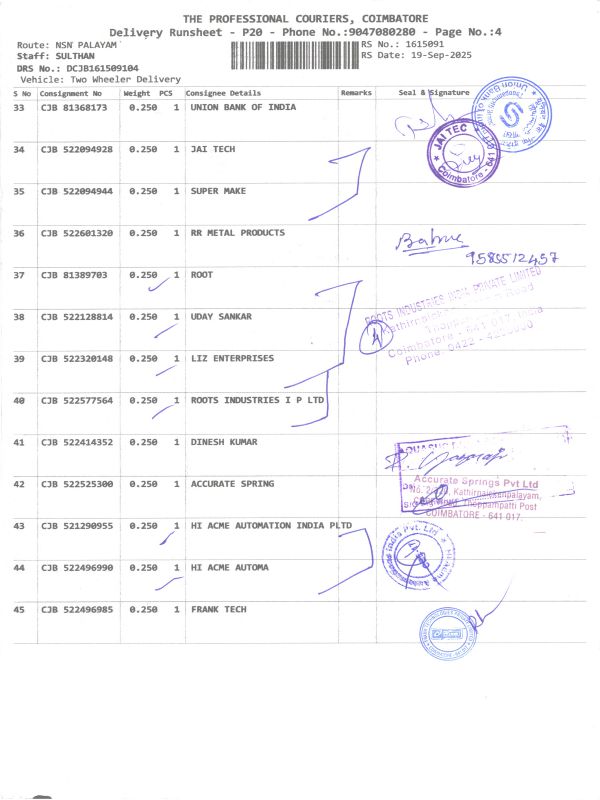 THE PROFESSIONAL COURIERS, COIMBATORE
Delivery Runsheet - P20 - Phone No.:9047080280 - Page No.:4
Route: NSN PALAYAM RS No.: 1615091
Staff: SULTHAN RS Date: 19-Sep-2025
DRS No.: DCJB161509104
Vehicle: Two Wheeler Delivery
S No Consignment No Weight PCS Consignee Details Remarks Seal & Signature
33 CJB 81368173 0.250 1 UNION BANK OF INDIA
Union Bank of
34 CJB 522094928 0.250 1 JAI TECH
JAI TEC
Coimbatore - 641
35 CJB 522094944 0.250 1 SUPER MAKE
36 CJB 522601320 0.250 1 RR METAL PRODUCTS
9585512457
37 CJB 81389703 0.250 1 ROOT
ROOTS INDUSTRIES INDIA PRIVATE LIMITED
38 CJB 522128814 0.250 1 UDAY SANKAR
Road
India
Coimbatore - 641 017
4
39 CJB 522320148 0.250 1 LIZ ENTERPRISES
Phone: 0422 -
40 CJB 522577564 0.250 1 ROOTS INDUSTRIES I P LTD
41 CJB 522414352 0.250 1 DINESH KUMAR
42 CJB 522525300 0.250 1 ACCURATE SPRING
Accurate Springs Pvt Ltd
Kathirnaickenpalayam,
Thoppampatti Post
COIMBATORE - 641 017.
43 CJB 521290955 0.250 1 HI ACME AUTOMATION INDIA PLTD
India Pvt. Ltd
44 CJB 522496990 0.250 1 HI ACME AUTOMA
45 CJB 522496985 0.250 1 FRANK TECH